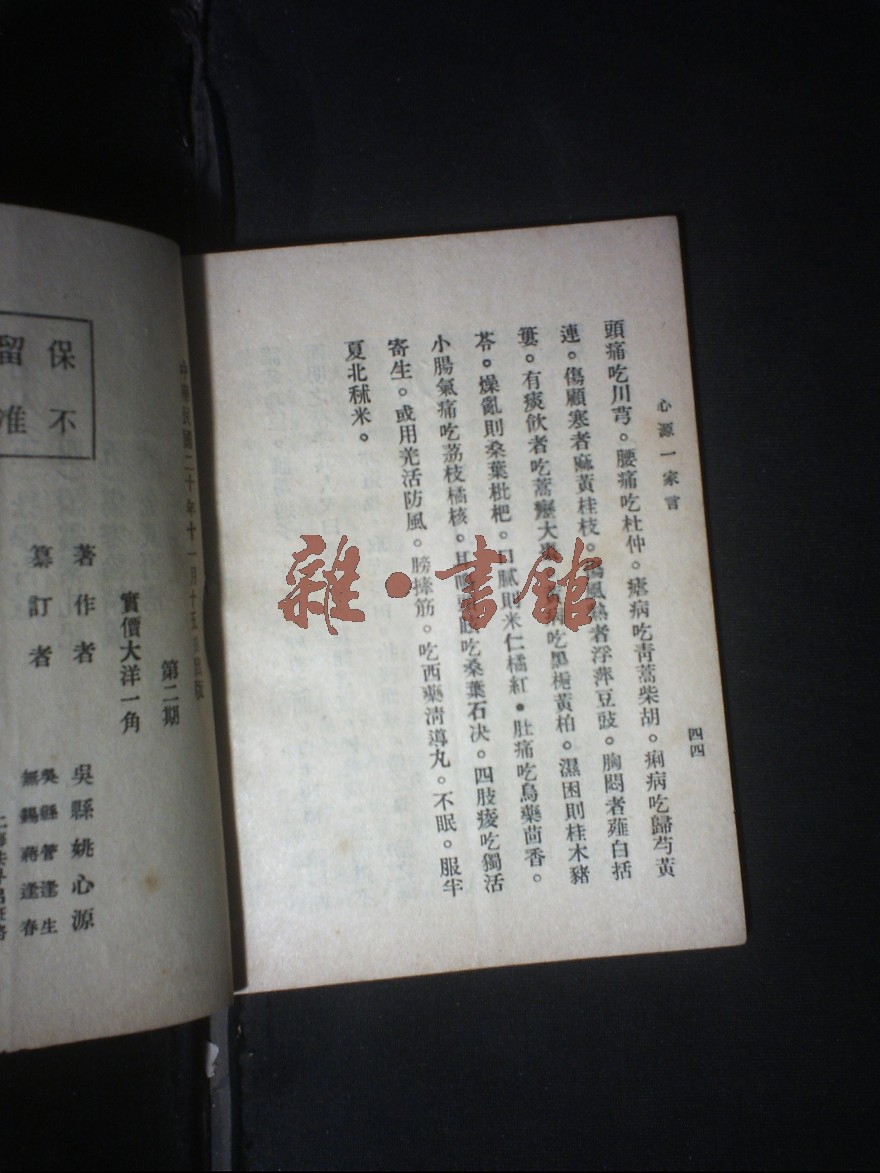 心源一家言
四四
頭痛吃川芎。腰痛吃杜仲。瘧病吃靑蒿柴胡。痢病吃歸芍黃
連。傷顧塞者麻黃桂枝。風熱者浮萍豆豉。胸悶者薤白括
蔞。有痰飮者吃葶藶大棗。吃黑梔黃柏。濕困則桂木豬
苓。燥亂則桑葉枇杷。口膩則米仁橘紅。肚痛吃烏藥茴香。
小腸氣痛吃荔枝橘核。吃桑葉石决。四肢痠吃獨活
寄生。或用羌活防風。膀搸筋。吃西藥淸導丸。不眠。服半
夏北秫米。
中華民國二十年十一月十五日出版
第二期
實價大洋一角
著作者 吳縣姚心源
纂訂者 吳縣管逢生
無錫蔣逢春
保留
不准
雜·書館